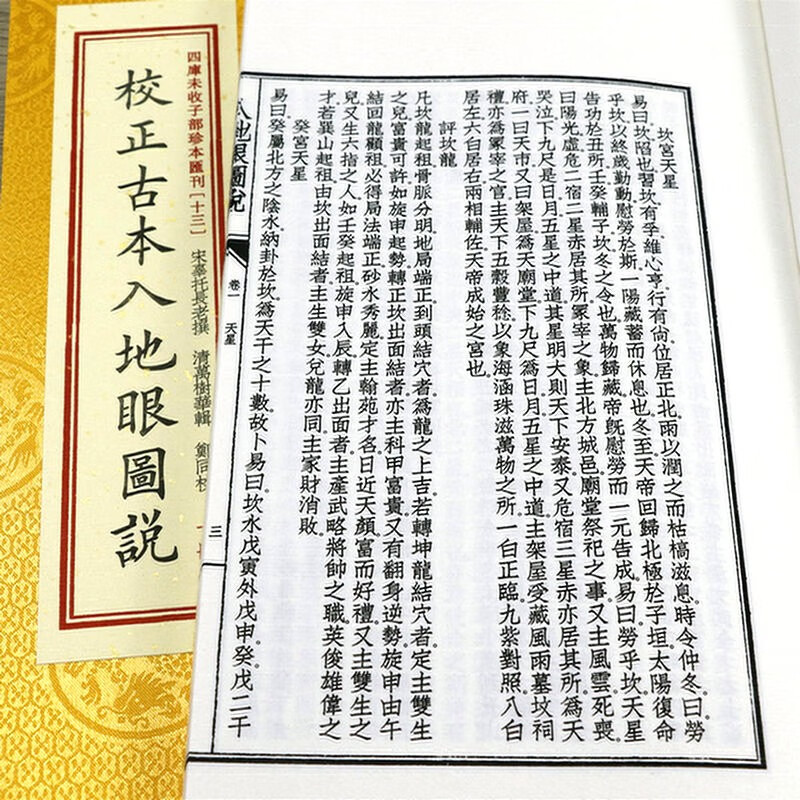 四庫未收子部珍本匯刊〔十三〕
校正古本入地眼圖說
宋辜托長老撰 清萬樹華輯
坎宮天星
易曰坎陷也習坎有孚維心亨行有尚位居正北雨以潤之而枯槁滋息時令仲冬曰勞
乎坎以終歲勤動慰勞於斯一陽藏蓄而休息也冬至天帝回歸北極於子垣太陽復命
告功於丑所壬癸輔子坎冬之令也萬物歸藏帝既慰勞而一元告成易曰勞乎坎天星
曰陽光虛危二宿二星赤居其所冢宰之象主北方城邑廟堂祭祀之事又主風雲死喪
哭泣下九尺是日月五星之中道其星明大則天下安泰又危宿三星赤亦居其所為天
府一曰天巿又曰架屋為天廟堂下九尺爲日月五星之中道主架屋受藏風雨墓坟祠
禋亦爲冢宰之官主天下五穀豐稔以象海涵珠滋萬物之所一白正臨九紫對照八白
居左六白居右兩相輔佐天帝成始之宮也
評坎龍
凡坎龍起祖骨脈分明地局端正到頭結穴者爲龍之上吉若轉坤龍結穴者定主雙生
之兒富貴可許如旋申起勢轉正坎出面結者亦主科甲富貴又有翻身逆勢旋申由午
結回龍顧祖必得局法端正砂水秀麗定主翰苑才名日近天顏富而好禮又主雙生之
兒又生六指之人如壬癸起祖旋申入辰轉乙出面者主產武略將帥之職英俊雄偉之
才若巽山起祖由坎出面結者主生雙女兌龍亦同主家財消敗
癸宮天星
易曰癸屬北方之陰水納卦於坎爲天干之十數故卜易曰坎水戊寅外戊申癸戊二干
地眼圖說
卷一
天星
三